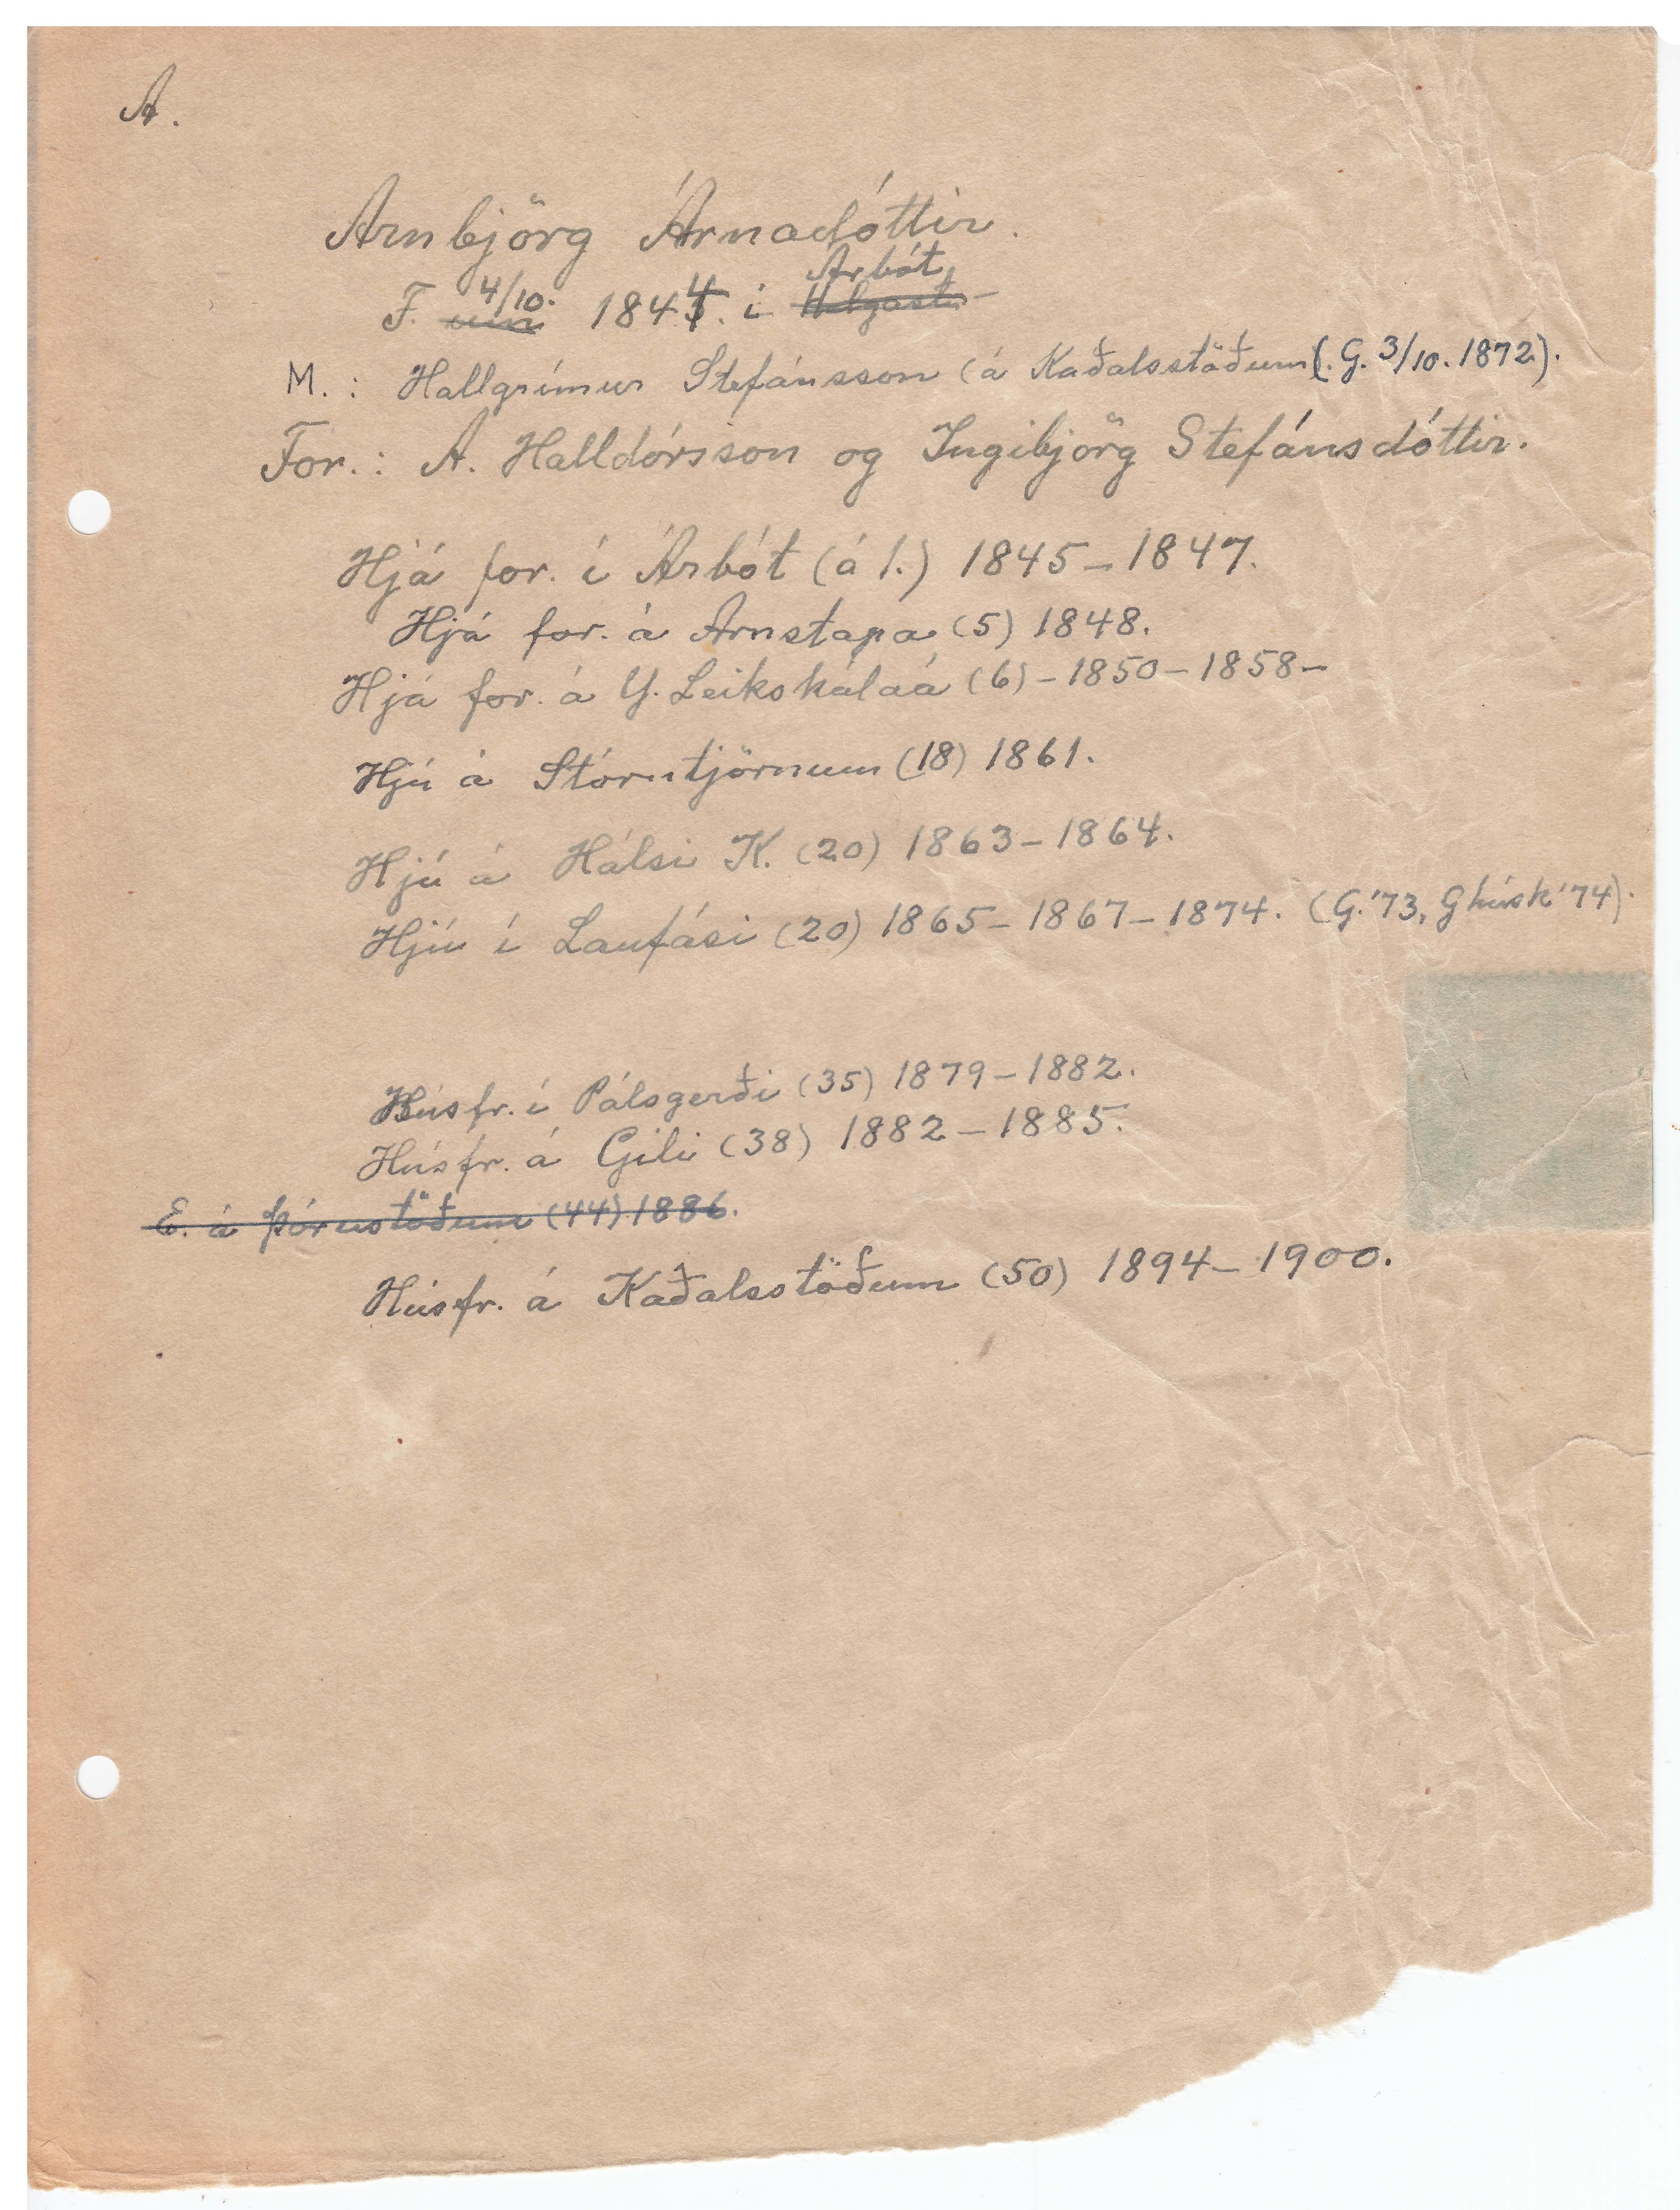 A.
Arnbjörg Árnadóttir.
F. um 4/10. 1844. í Helgast. Árbót,
M.: Hallgrímur Stefánsson (á Kaðalsstöðum (. G. 3/10. 1872).
For.: Á. Halldórsson og Ingibjörg Stefánsdóttir.
Hjá for. í Árbót (á 1.) 1845-1847.
Hjá for. á Arnstapa (5) 1848.
Hjá for. á Y. Leikskálaá (6) - 1850-1858-
Hjú á Stórutjörnum (18) 1861.
Hjú á Hálsi K. (20) 1863-1864.
Hjú í Laufási (20) 1865-1867-1874. (G.'73, Ghúsk'74).
Húsfr. í Pálsgerði (35) 1879-1882.
Húsfr. á Gili (38) 1882-1885.
E. á Þórustöðum (44) 1886.
Húsfr. á Kaðalsstöðum (50) 1894-1900.